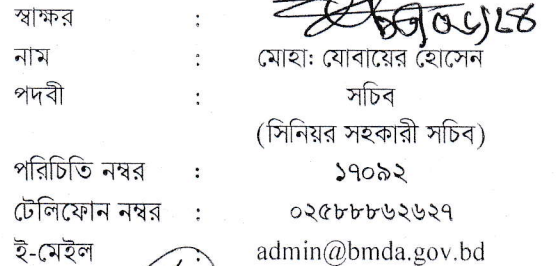 স্বাক্ষর :
নাম : মোহা: যোবায়ের হোসেন
পদবী : সচিব
(সিনিয়র সহকারী সচিব)
পরিচিতি নম্বর : ১৭০৯২
টেলিফোন নম্বর : ০২৫৮৮৮৬২৬২৭
ই-মেইল : admin@bmda.gov.bd